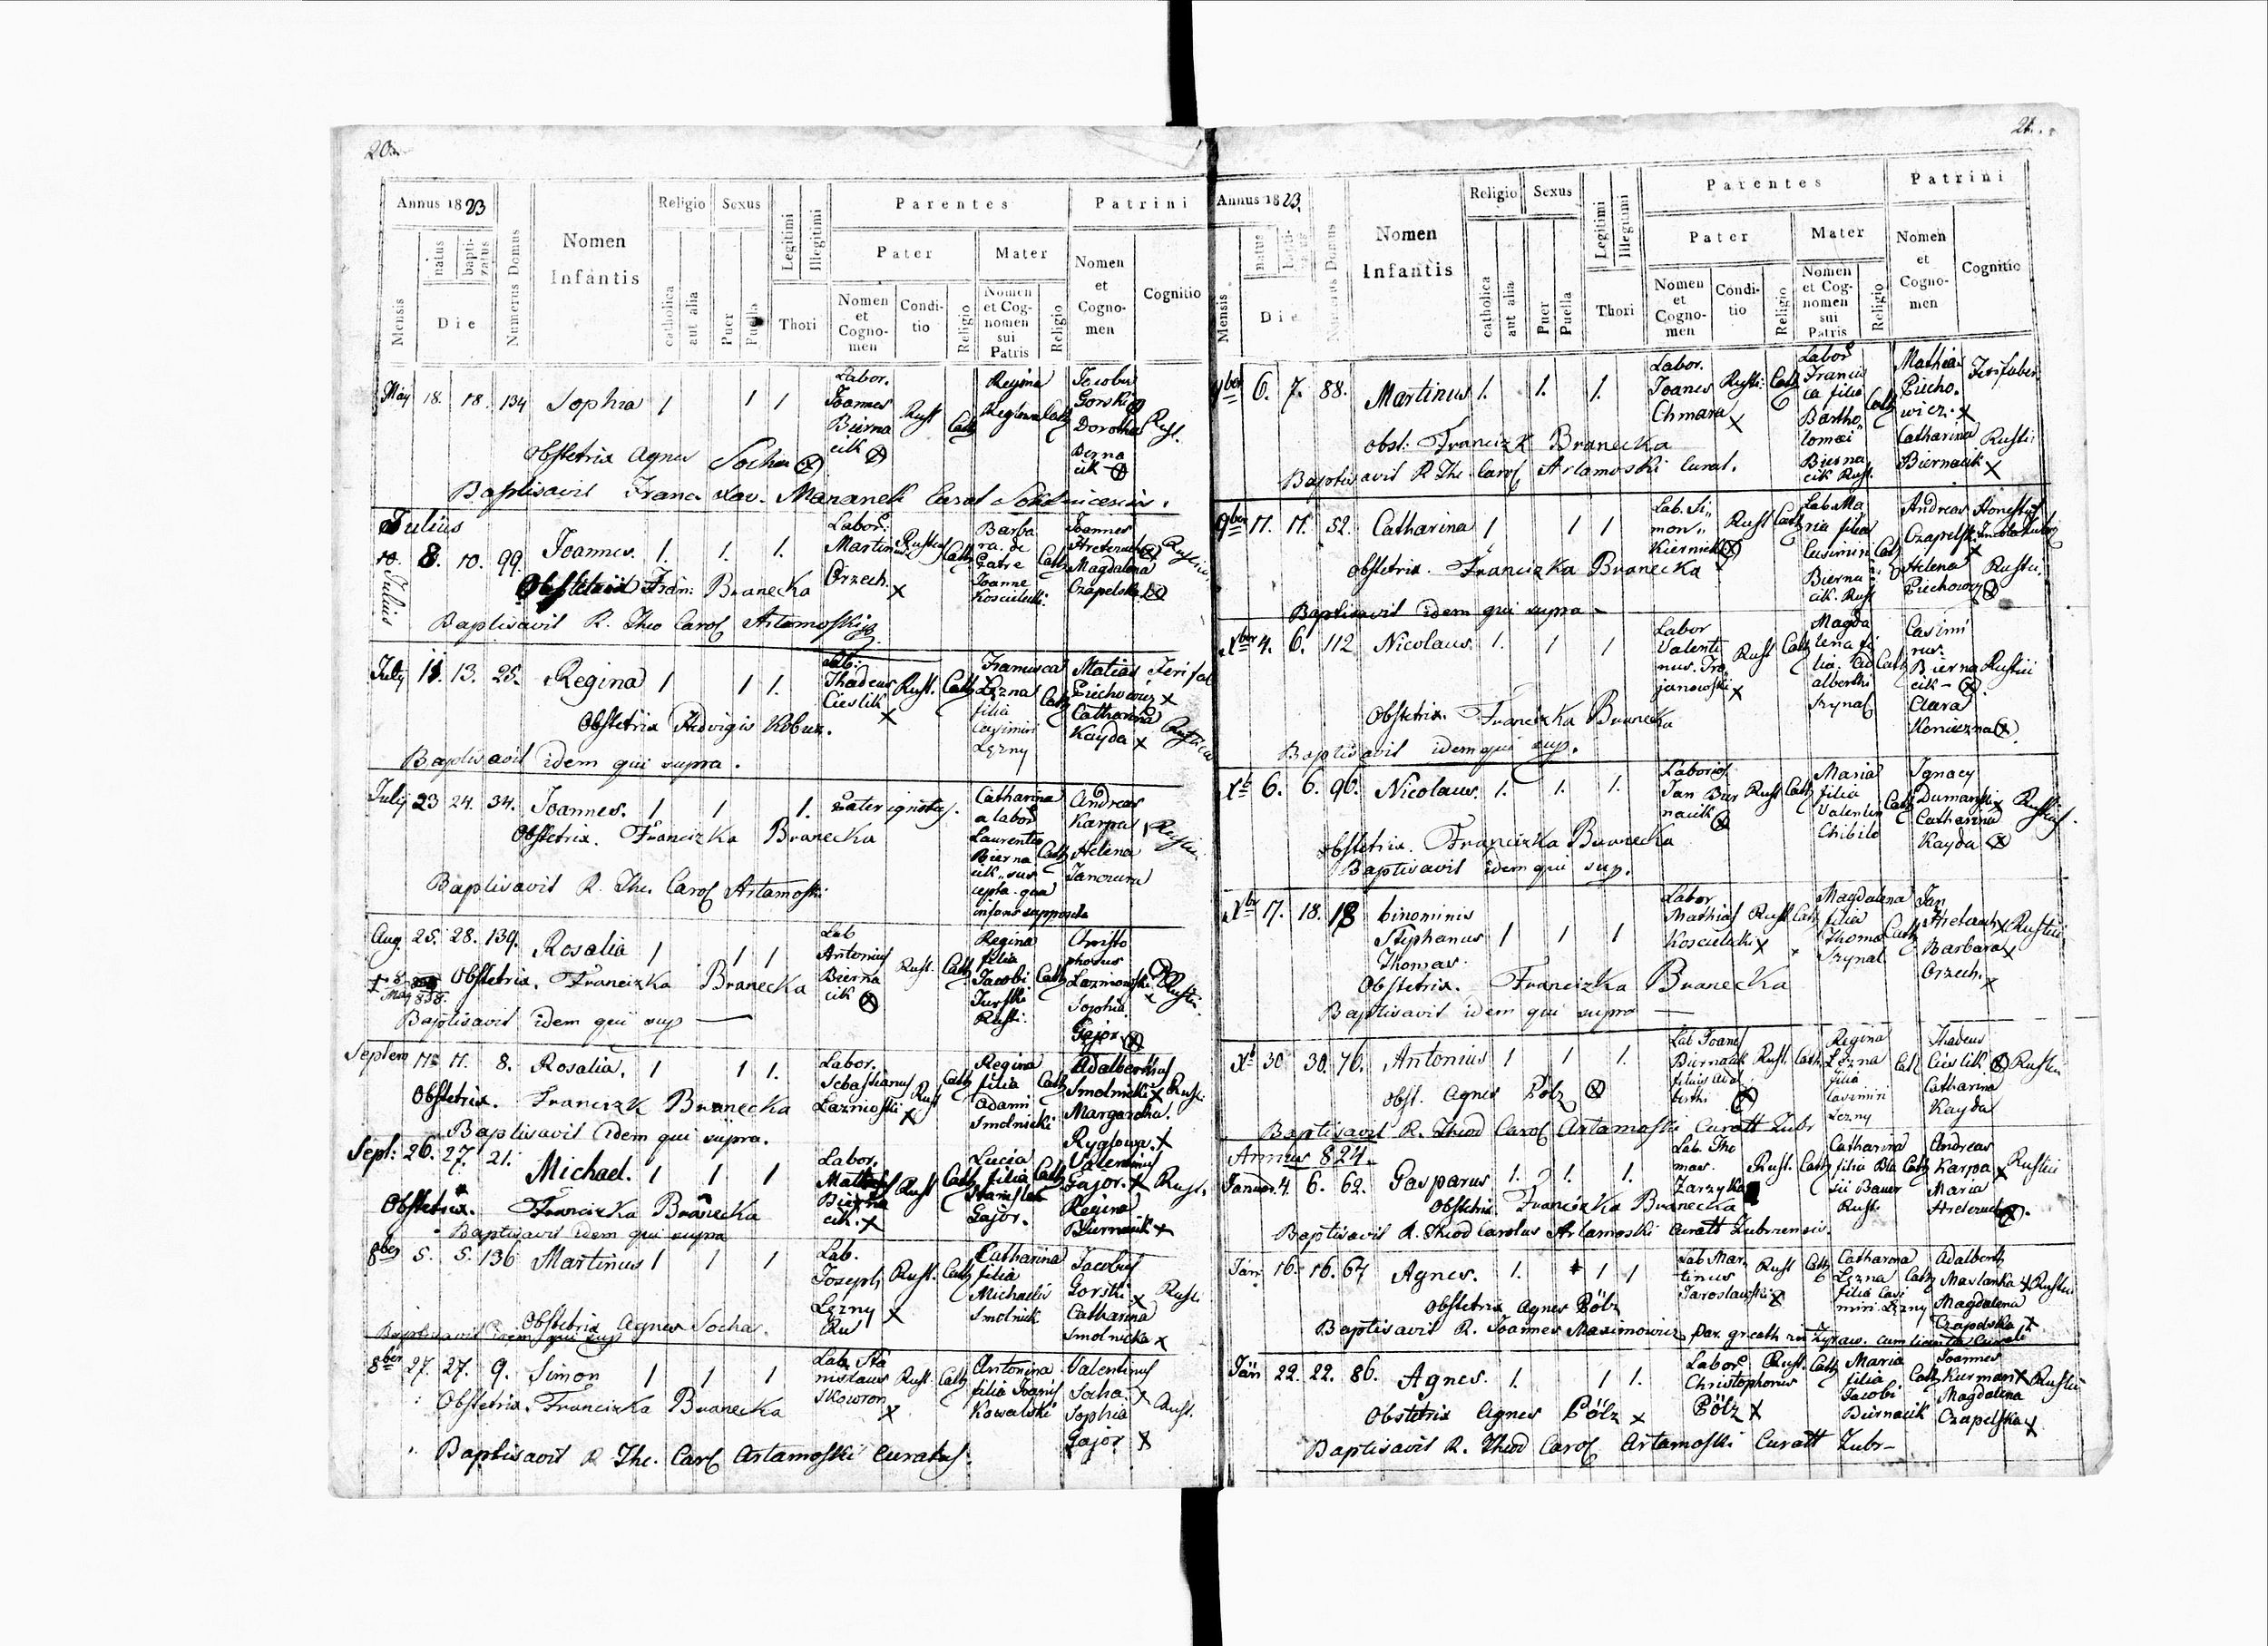 20.
Annus 1823
Mensis
natus
baptizatus
Die
Numerus Domus
Nomen
Infantis
Religio
catholica
aut alia
Sexus
Puer
Puella
Legitimi
Illegitimi
Thori
Parentes
Pater
Nomen
et
Cogno-
men
Condi-
tio
Religio
Mater
Nomen
et Cog-
nomen
sui
Patris
Religio
Patrini
Nomen
et
Cogno-
men
Cognitio
May 18. 18. 134 Sophia 1 1 1
Labor.
Joannes
Bierna
cik
Rust Cath
Regina
Cath
Jacobus
Gorski
Dorothea
Berna
cik
Rust.
Obstetrix Agnes Socha
Baptisavit Franc. Xav. Mananek Curat
Julius
10. 8. 10. 99. Joannes. 1. 1. 1.
Julius
Labor:
Martinus
Orzech. x
Rusticus Cath
Barba
ra. de
Patre
Joanne
Koscielecki.
Cath
Joannes
Hretczuch
Magdalena
Czapelska
Obstetrix Fran: Branecka
Baptisavit R. Theo Carol Artamoski
July 11. 13. 25. Regina 1 1 1.
Lab:
Thadeus
Cieslik
x
Rust. Cath
Francisca
Lęzna
filia
Casimiri
Lęzny
Cath
Matias
Piechowicz x
Catharina
Kayda x
Ferifab
Rustica
Obstetrix Hedvigis Kobuz.
Baptisavit idem qui supra.
July 23 24. 34. Joannes. 1 1 1.
Pater ignotus.
Catharina
a labor
Laurentio
Bierna
cik sus
cepta. qua
infans supposita
Cath
Andreas
Karpa
Helena
Janczura
Obstetrix. Franciszka Branecka
Baptisavit R. The. Carol Artamoski
Aug. 25. 28. 139. Rosalia 1 1 1
Lab
Antonius
Bierna
cik
Rust. Cath
Regina
filia
Jacobi
Turski
Rusti:
Cath
Christo
phorus
Lazniowski
Sophia
Gajor
Rustici
Obstetrix. Franciszka Branecka
Baptisavit idem qui sup —
Septem 17. 17. 8. Rosalia. 1 1 1.
Labor.
Sebastianus
Laznioski x
Rust Cath
Regina
filia
Adami
Smolnicki
Cath
Adalbertus
Smolnicki x
Margaretha.
Ryglowa. x
Rusti:
Obstetrix. Franciszk Branecka
Baptisavit idem qui supra.
Sept: 26. 27. 21. Michael. 1 1 1
Labor.
Bierna
cik. x
Rust Cath
Lucia
filia
Stanislai
Gajor.
Cath
Valentinus
Gajor. x
Regina
Biernacik x
Rust.
Obstetrix. Franciszka Branecka
Baptisavit idem qui supra
8ber 5. 5. 136 Martinus 1 1 1
Lab.
Joseph
Lęzny x
Ru
Rust. Cath
Catharina
filia
Michaelis
Smolnik
Jacobus
Gorski x
Catharina
Smolnicka x
Rusti
Obstetrix Agnes Socha.
Baptisavit idem qui sup
8ber 27. 27. 9. Simon 1 1 1
Lab. Sta
nislaus
Skowron
x
Rust. Cath
Antonina
filia Joanis
Kowalski
Valentinus
Socha. x
Sophia
Gajor x
Rust.
Obstetrix. Franciszka Branecka
Baptisavit R. The. Carl Artamoski Curatus.
21.
Annus 1823.
Mensis
natus
Die
Numerus Domus
Nomen
Infantis
Religio
catholica
aut alia
Sexus
Puer
Puella
Legitimi
Illegitimi
Thori
Parentes
Pater
Nomen
et
Cogno-
men
Condi-
tio
Religio
Mater
Nomen
et Cog-
nomen
sui
Patris
Religio
Patrini
Nomen
et
Cogno-
men
Cognitio
9ber 6. 7. 88. Martinus 1. 1. 1.
Labor.
Joanes
Chmara x
Rusti: Cath
Labor
Francis
ca filia
Bartho
lomæi
Bierna
cik Rust.
Cath
Mathias
Piecho.
wicz. x
Catharina
Biernacik x
Ferifaber
Rustici
obst: Franciszk Branecka
Baptisavit R The. Carol Artamoski Curat.
9ber 17. 17. 52. Catharina 1 1 1
Lab. Si
mon
Kiernik
Rust Cath
Lab. Ma
ria filia
Casimiri
Bierna
cik. Rust
Cath
Andreas
Czapelski
x
Helena
Piechowicz
Rustici.
Obstetrix. Franciszka Branecka
Baptisavit idem qui supra —
Xber 4. 6. 112 Nicolaus. 1. 1 1
Labor
Valenti
nus. Tro
janowski x
Rust Cath
Magda
lena fi
lia. Ad
alberthi
Szynal
Cath
Casimi
rus.
Bierna
cik —
Clara
Konieczna
Rustici
Obstetrix. Franciszka Branecka
Baptisavit idem qui sup.
Xb 6. 6. 96. Nicolaus. 1. 1. 1.
Laborios
Jan Bier
nacik
Rust Cath
Maria
filia
Valentin
Chibilo
Cath
Ignacy
Dumanski x
Catharina
Kayda
Rustici.
Obstetrix. Franciszka Branecka
Baptisavit idem qui sup.
Xbr 17. 18. 18 binominis
Stephanus 1 1 1
Thomas.
Labor
Mathias
Koscielecki x
Rust Cath
Magdalena
filia
Thoma
Szynal
Cath
Jan
Hretczuch x
Barbara x
Orzech. x
Rustici
Obstetrix. Franciszka Branecka
Baptisavit idem qui supra —
Xb 30 30. 76. Antonius 1 1 1.
Lab Joanes
Biernacik
filius Adal
berthi
Rust. Cath.
Regina
Lęzna
filia
Casimiri
Lęzny
Cath
Thadeus
Cieslik
Catharina
Kayda
Rustici
obst. Agnes Pölz
Baptisavit R. Theod Carol Artamoski Curatt Zubr
Annus 824.
Januar. 4. 6. 62. Gasparus 1. 1. 1.
Lab. Tho
mas.
Zarzyka
Rust. Cath
Catharina
filia Bla
sii Bauer
Rust.
Cath
Andreas
Karpa x
Maria
Hretczuch
Rustici
Obstetrix. Franciszka Branecka
Baptisavit R. Theod Carolus Artamoski Curatt Zubrzensis.
Jan 16. 16. 67 Agnes. 1. 1 1
Lab Mar
tinus
Jaroslawski x
Rust Cath
Catharina
Lęzna
filia Casi
miri Lęzny
Cath
Adalbert
Maslanka x
Magdalena
Czapelska x
Rustici
Obstetrix Agnes Pölz
Baptisavit R. Joannes Maximowicz par. gr cath cum licentia Curati
Jän 22. 22. 86. Agnes. 1. 1 1.
Labor
Christophorus
Pölz x
Rust. Cath
Maria
filia
Jacobi
Biernacik
Cath
Joannes
Kurman x
Magdalena
Czapelska x
Rustici
Obstetrix Agnes Pölz x
Baptisavit R. Theod Carol Artamoski Curatt Zubr—